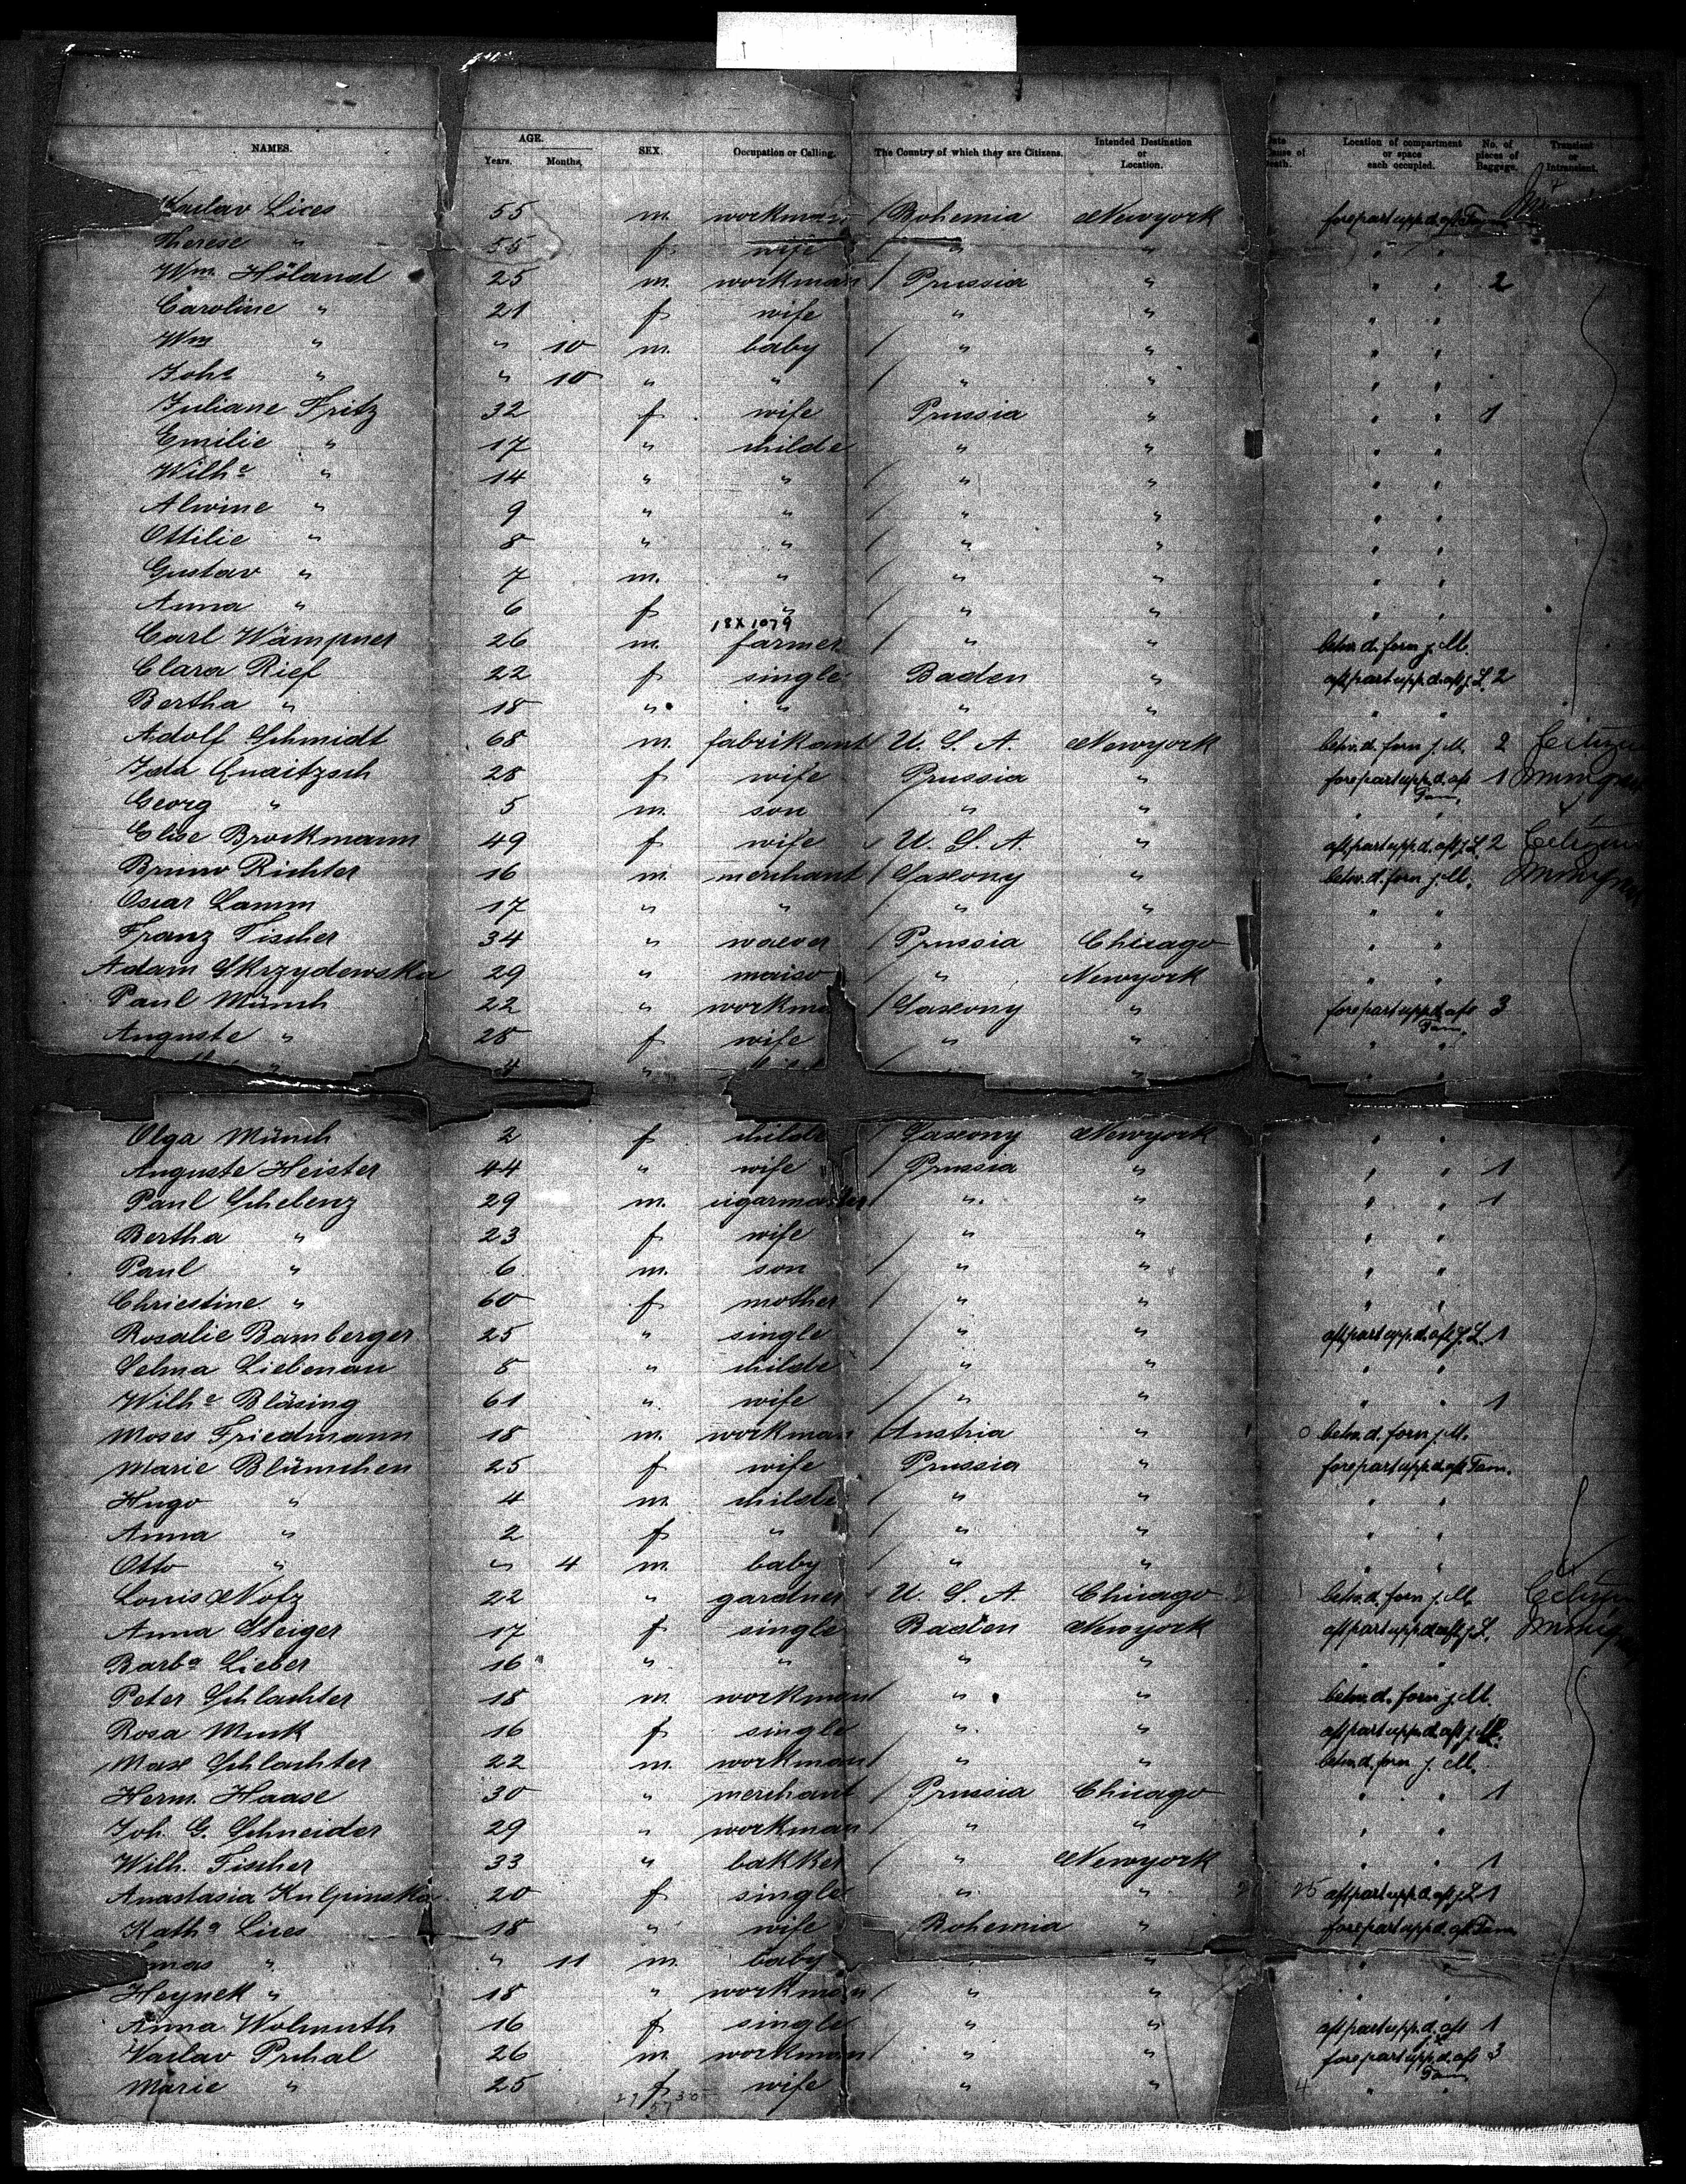 NAMES. AGE. Years. Months. SEX. Occupation or Calling. The Country of which they are Citizens. Intended Destination or Location. Location of compartment or space each occupied. No. of pieces of Baggage. Transient or Intransient.
Lices 55 m. workman Bohemia Newyork forepart upp. d. aft Fam
Therese " 55 f wife " " " "
Wm. Höland 25 m. workman Prussia " " " 2
Caroline " 21 f wife " " " "
Wm " " 10 m. baby " " " "
Joh: " " 10 " " " " " "
Juliane Fritz 32 f wife Prussia " " " 1
Emilie " 17 " childe " " " "
Wilhe " 14 " " " " " "
Alwine " 9 " " " " " "
Ottilie " 8 " " " " " "
Gustav " 7 m. " " " " "
Anna " 6 f " " " " "
18X1079
Carl Wämpner 26 m. farmer " " betw. d. forn j. M.
Clara Rief 22 f single Baden " aft part upp. d. aft j. L. 2
Bertha " 18 " " " " " "
Adolf Schmidt 68 m. fabrikant U. S. A. Newyork betw. d. forn j. M. 2
Ida Gnaitzsch 28 f wife Prussia " forepart upp. d. aft Fam. 1
Georg " 5 m. son " " " "
Elise Brockmann 49 f wife U. S. A. " aft part upp. d. aft j. L. 2
Bruno Richter 16 m. merchant Saxony " betw. d. forn j. M.
Oscar Lamm 17 " " " " " "
Franz Fischer 34 " waever Prussia Chicago " "
Adam Skrzydewska 29 " maiso " Newyork " "
Paul Münch 22 " workma Saxony " forepart upp. d. aft Fam. 3
Auguste " 28 f wife " " " "
" 4 " " " "
Olga Münch 2 f childe Saxony Newyork " "
Auguste Heister 44 " wife Prussia " " " 1
Paul Schelenz 29 m. cigarmaker " " " " 1
Bertha " 23 f wife " " " "
Paul " 6 m. son " " " "
Chriestine " 60 f mother " " " "
Rosalie Bamberger 25 " single " " aft part upp. d. aft j. L. 1
Selma Liebenau 8 " childe " " " "
Wilhe Bläsing 61 " wife " " " " 1
Moses Friedmann 18 m. workman Austria " betw. d. forn j. M.
Marie Blümchen 25 f wife Prussia " forepart upp. d. aft Fam.
Hugo " 4 m. childe " " " "
Anna " 2 f " " " " "
Otto " " 4 m. baby " " " "
Louis Notz 22 " gardner U. S. A. Chicago betw. d. forn j. M.
Anna Steiger 17 f single Baden Newyork aft part upp. d. aft j. L.
Barba Lieber 16 " " " " " "
Peter Schlachter 18 m. workman " " betw. d. forn j. M.
Rosa Munk 16 f single " " aft part upp. d. aft j.
Max Schlachter 22 m. workman " " betw. d. forn j. M.
Herm. Haase 30 " merchant Prussia Chicago " " 1
Joh. G. Schneider 29 " workman " " " "
Wilh. Fischer 33 " bakker " Newyork " " 1
Anastasia Kulpinska 20 f single " " 25 aft part upp. d. aft j. L. 1
Katha Lices 18 " wife Bohemia " forepart upp. d. aft Fam
" " 11 m. baby " "
Heynek " 18 " workman " " " "
Anna Wolmuth 16 f single " " aft part upp. d. aft 1
Vaclav Prchal 26 m. workman " " forepart upp. d. aft Fam 3
Marie " 25 f wife " " " "